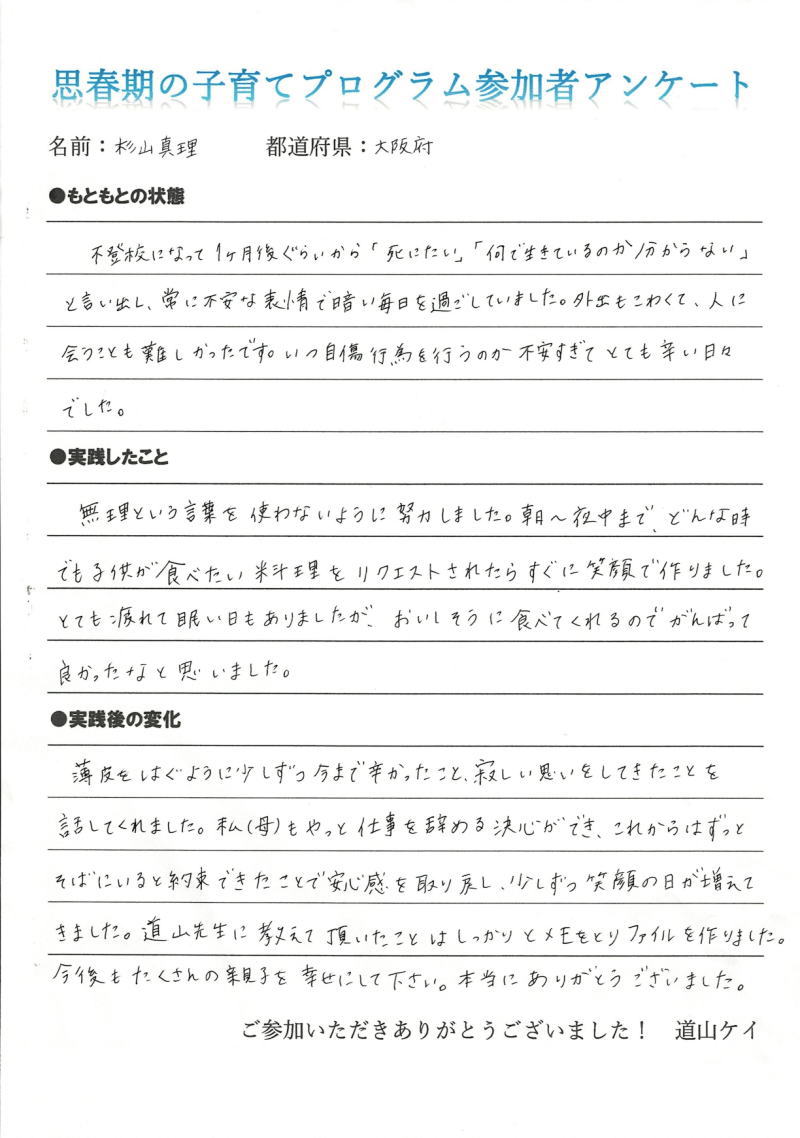 思春期の子育てプログラム参加者アンケート
名前：杉山真理　都道府県：大阪府
●もともとの状態
不登校になって1ヶ月後ぐらいから「死にたい」「何で生きているのか分からない」
と言い出し、常に不安な表情で暗い毎日を過ごしていました。外出もこわくて、人に
会うことも難しかったです。いつ自傷行為を行うのか不安すぎてとても辛い日々
でした。
●実践したこと
無理という言葉を使わないように努力しました。朝～夜中まで、どんな時
でも子供が食べたい料理をリクエストされたらすぐに笑顔で作りました。
とても疲れて眠い日もありましたが、おいしそうに食べてくれるのでがんばって
良かったなと思いました。
●実践後の変化
薄皮をはぐように少しずつ今まで辛かったこと、寂しい思いをしてきたことを
話してくれました。私(母)もやっと仕事を辞める決心ができ、これからはずっと
そばにいると約束できたことで安心感を取り戻し、少しずつ笑顔の日が増えて
きました。道山先生に教えて頂いたことはしっかりとメモをとりファイルを作りました。
今後もたくさんの親子を幸せにして下さい。本当にありがとうございました。
ご参加いただきありがとうございました！　道山ケイ